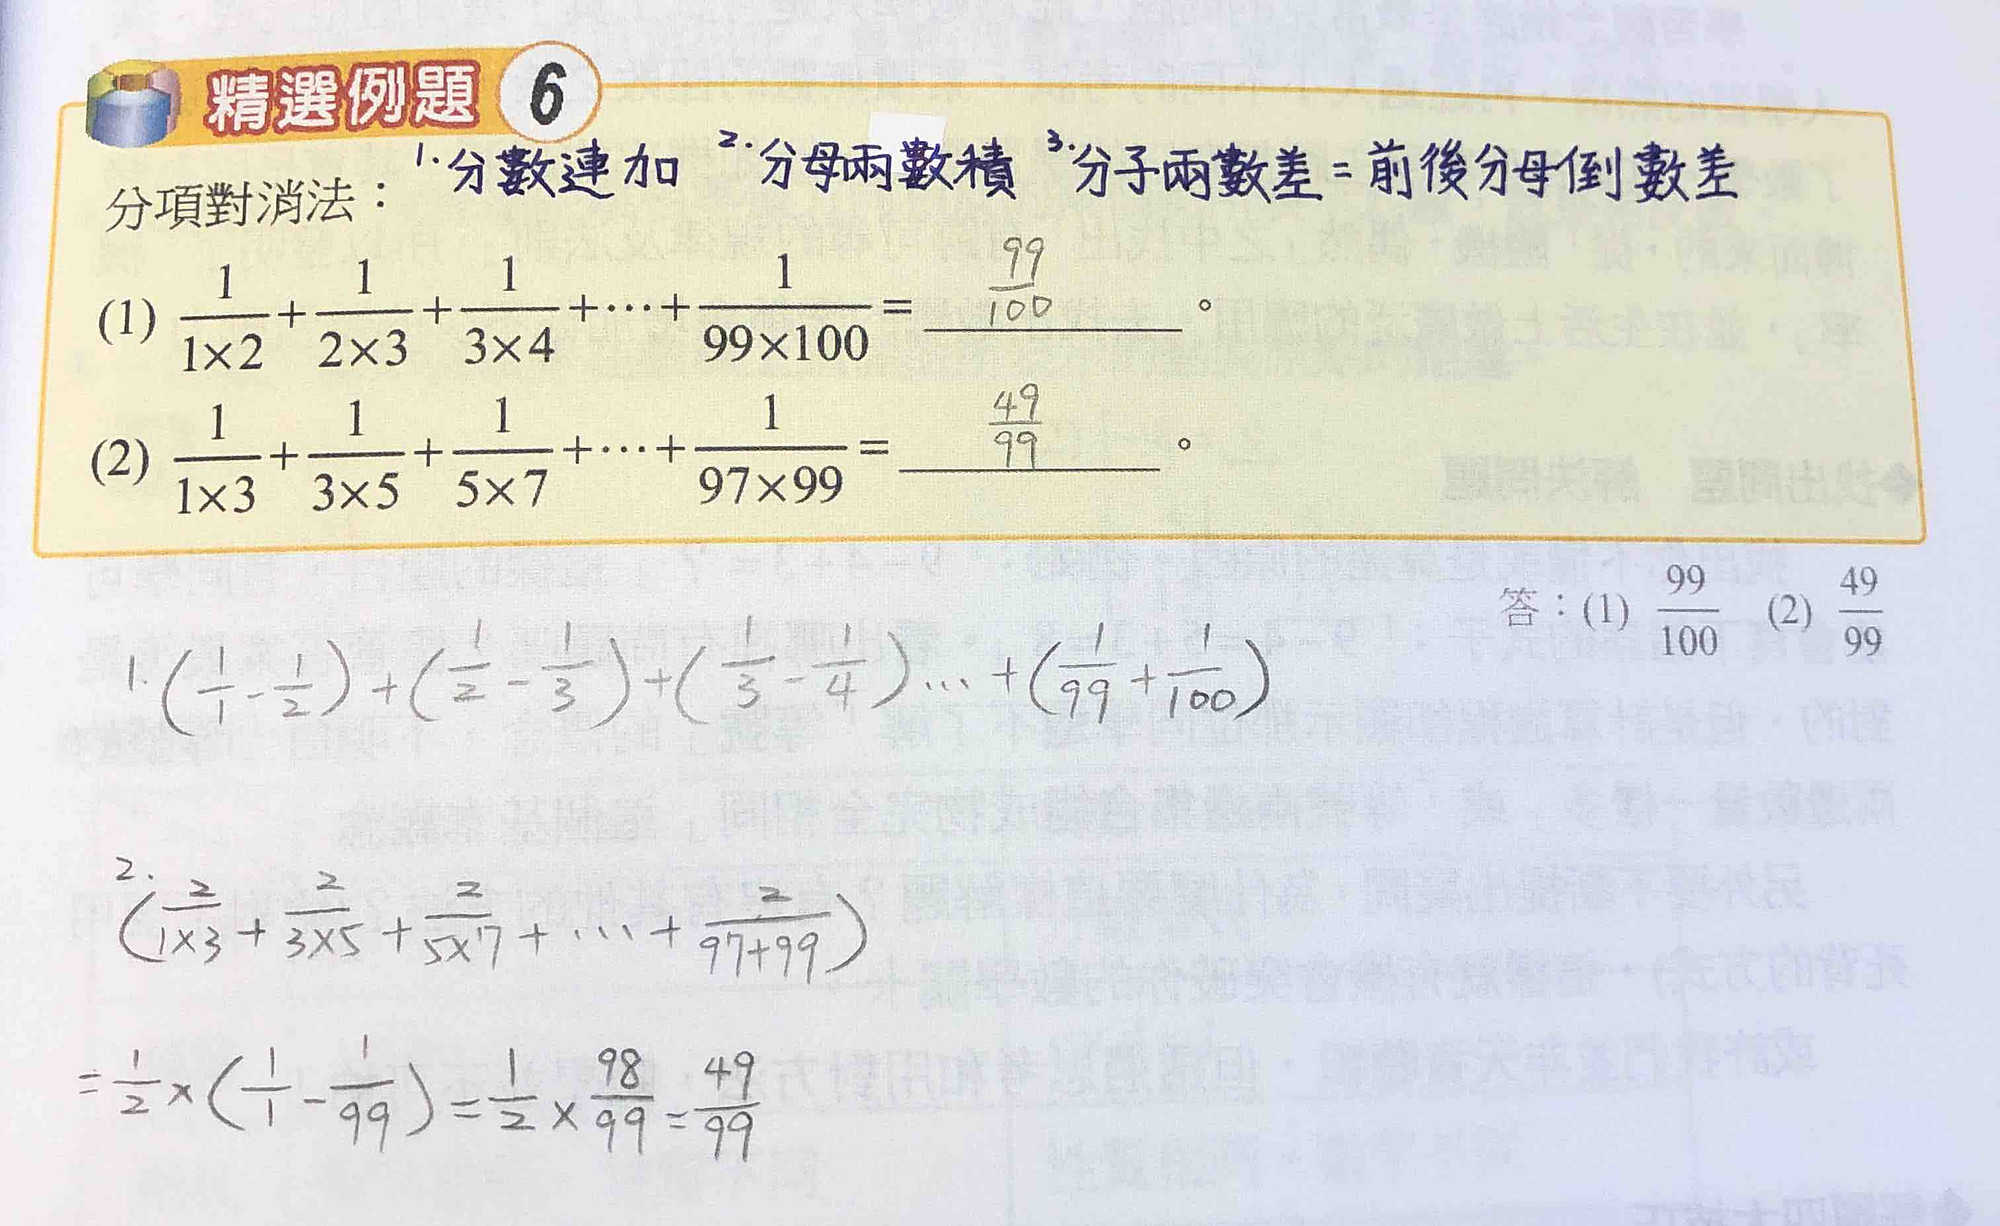 精選例題 6
1.分數連加 2.分母兩數積 3.分子兩數差=前後分母倒數差
分項對消法：
(1) 1/(1×2) + 1/(2×3) + 1/(3×4) +…+ 1/(99×100) = 99/100 。
(2) 1/(1×3) + 1/(3×5) + 1/(5×7) +…+ 1/(97×99) = 49/99 。
答：(1) 99/100 (2) 49/99
1. (1/1 - 1/2) + (1/2 - 1/3) + (1/3 - 1/4) … + (1/99 + 1/100)
2.
(2/(1×3) + 2/(3×5) + 2/(5×7) + … + 2/(97+99))
= 1/2 × (1/1 - 1/99) = 1/2 × 98/99 = 49/99